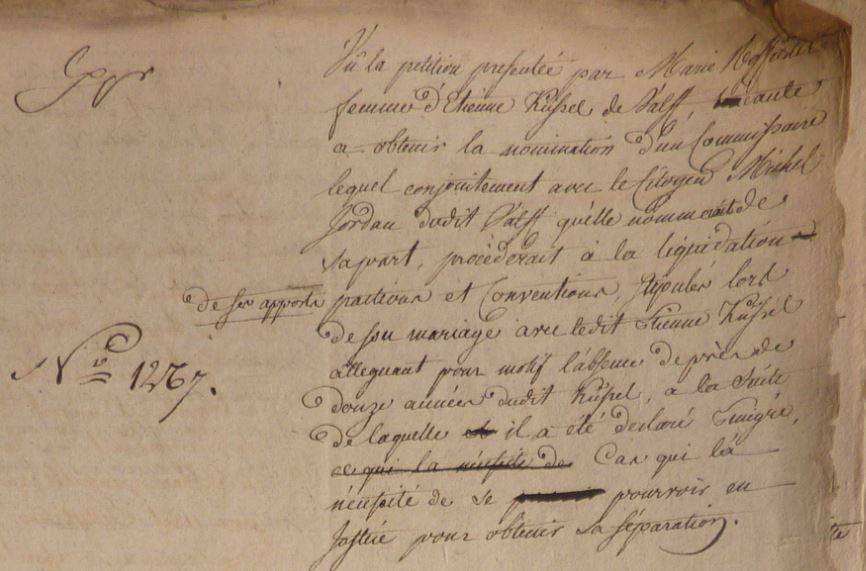 Vû la petition presentée par Marie
femme d'Etienne Küssel de Valff, tendante
a obtenir la nomination d'un Commissaire
lequel conjointement avec le Citoyen Michel
Jordan dudit Valff qu'elle nommerait de
sa part, procéderait à la liquidation
de ses apports pactions et Conventions stipulés lors
de son mariage avec ledit Etienne Küssel
alleguant pour motif l'absence de près de
douze années dudit Küssel, a la suite
de laquelle il a été declaré Emigré,
ce qui la nécessite de Cas qui la
nécessité de se pourvoir en
Justice pour obtenir sa séparation.
N.º 1267.